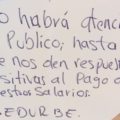 o habrá atenc
Publico; hasta
e nos den respuest
sitivas al Pago d
estros Salarios.
EDUR BE.